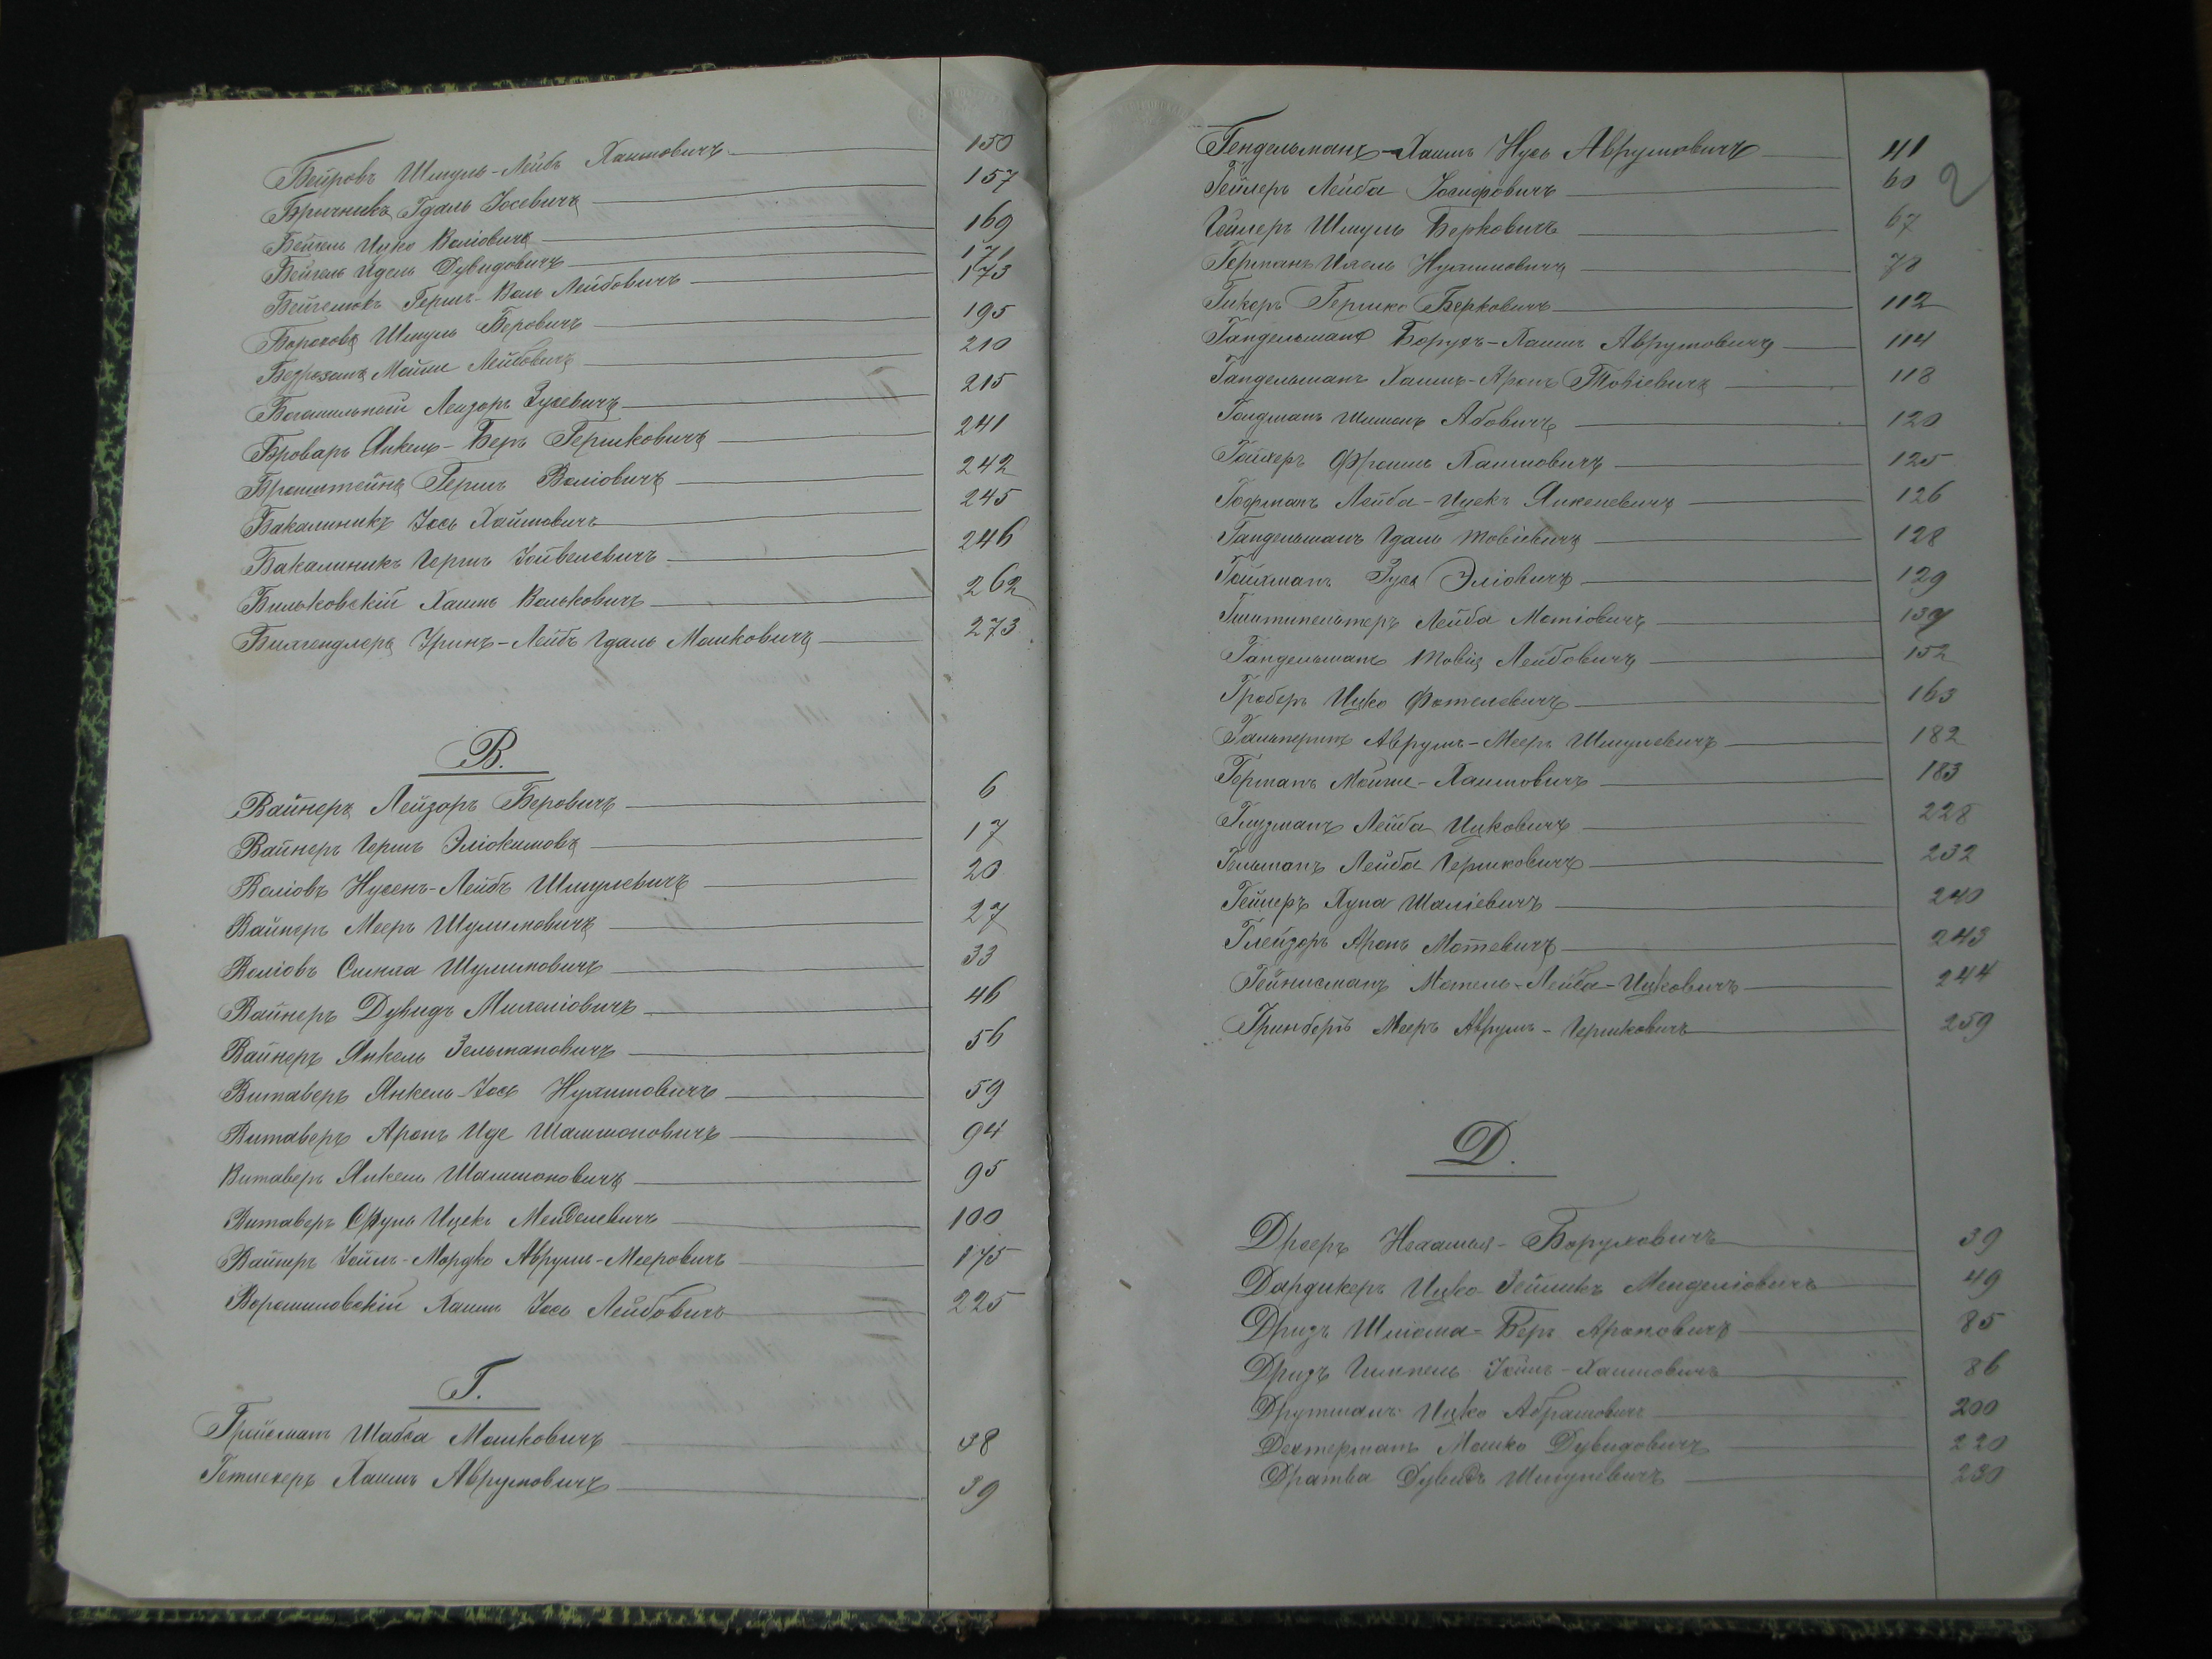 Бейровъ Шмуль-Лейбъ Хаимовичъ 150
Бричникъ Гдаль Іосевичъ 157
Бейгель Ицко Воліовичъ 169
Бейгель Идель Дувидовичъ 171
Герш-Воль Лейбовичъ 173
Бороховъ Шмуль Беровичъ 195
Мойше Лейбовичъ 210
Лейзоръ Зусевичъ 215
Броваръ Янкель-Беръ Гершковичъ 241
Бронштейнъ Гершъ Воліовичъ 242
Бакалиникъ Іось Хаимовичъ 245
Бакалиникъ Гершъ Іойвелевичъ 246
Бильковскій Хаимъ Вольковичъ 262
Сринъ-Лейбъ Гдаль Мошковичъ 273
В.
Вайнеръ Лейзоръ Беровичъ 6
Вайнеръ Гершъ Эліокимовъ 17
Воліовъ Нусенъ-Лейбъ Шмулевичъ 20
Вайнеръ Мееръ Шулимовичъ 27
Воліовъ Симха Шулимовичъ 33
Вайнеръ Дувидъ Михеліовичъ 46
Вайнеръ Янкель Зельмановичъ 56
Витаверъ Янкель-Іось Нухимовичъ 59
Витаверъ Аронъ Иде Шамшоновичъ 94
Витаверъ Янкель Шамшоновичъ 95
Витаверъ Сруль Ицекъ Менделевичъ 100
Вайнеръ Хаим-Мордко Аврумъ-Мееровичъ 175
Ворошиловскій Хаимъ Іось Лейбовичъ 225
Г.
Гройсманъ Шабса Мошковичъ 38
Хаимъ Аврумовичъ 39
Гендельманъ-Хаимъ Нусь Аврумовичъ 41
2
Гейлеръ Лейба Іосифовичъ 60
Гейлеръ Шмуль Берковичъ 67
Германъ Нухимовичъ 78
Гикеръ Гершко Берковичъ 112
Гандельманъ Борухъ-Хаимъ Аврумовичъ 114
Гандельманъ Хаимъ-Аронъ Товіевичъ 118
Гольдманъ Шимонъ Абовичъ 120
Гойхеръ Фроимъ Хаимовичъ 125
Гофманъ Лейба-Ицекъ Янкелевичъ 126
Гандельманъ Гдаль Товіевичъ 128
Гойхманъ Зусь Эліовичъ 129
Лейба Мотіовичъ 137
Гандельманъ Товія Лейбовичъ 152
Гроберъ Ицко Фотелевичъ 163
Гальперинъ Аврумъ-Мееръ Шмулевичъ 182
Германъ Мойше-Хаимовичъ 183
Глузманъ Лейба Ицковичъ 228
Гельманъ Лейба Гершковичъ 232
Гейлеръ Хуна Шаліевичъ 240
Глейзоръ Аронъ Мотевичъ 243
Гейнисманъ Мотель-Лейба-Ицковичъ 244
Гринбергъ Мееръ Аврумъ-Гершковичъ 259
Д.
Дрееръ Нехамья-Боруховичъ 39
Дандикеръ Ицко Зейликъ Менделіовичъ 49
Дридъ Шліома-Беръ Ароновичъ 85
Дридъ Гимпель Хаимовичъ 86
Друтманъ Ицко Абрамовичъ 200
Дехтерманъ Мошко Дувидовичъ 220
Дратва Дувидъ Шмулевичъ 230